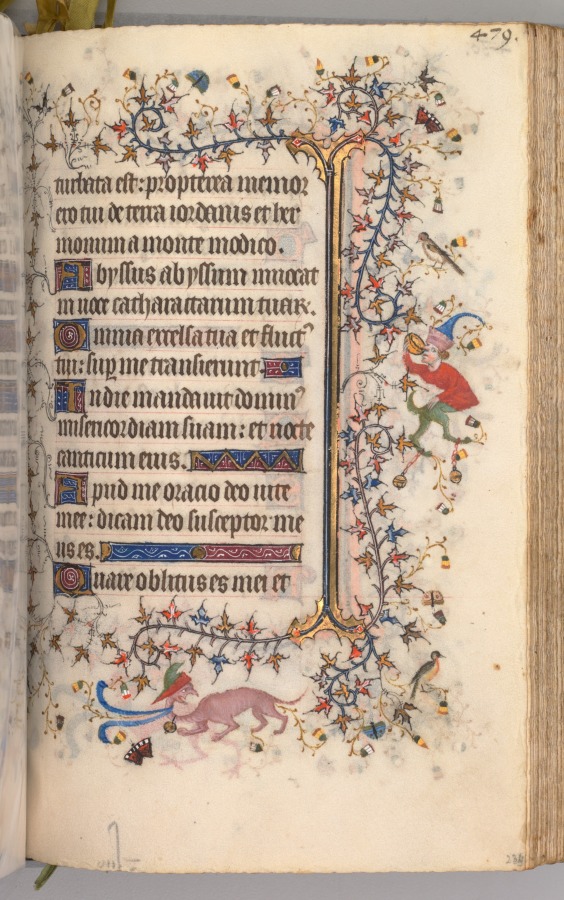 479.
turbata est: propterea memor
ero tui de terra iordanis et her
monium a monte modico.
Abyssus abyssum inuocat
in uoce catharactarum tuar.
Omnia excelsa tua et fluct9
tui: sup me transierunt.
In die mandauit domin9
misericordiam suam: et nocte
canticum eius.
Apud me oracio deo uite
mee: dicam deo susceptor me
us es.
Quare oblitus es mei et